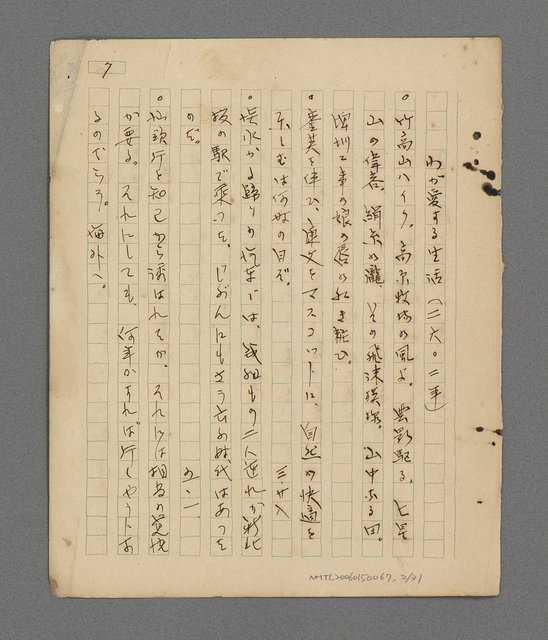 7
わが愛する生活(二六〇二年)
。竹高山ハイク。高原牧場の風よ。雲影駆る、七星
山の偉容。絹糸の瀧、その飛沫
山中ふる田。
工事の娘の唇の紅き粧ひ。
。を伴ひ、文をマスコットに、自然の快適を
楽しむは何の日ぞ。
三・廿八
。淡水から帰りの汽車では、幾組もの二人連れが新北
投の駅で乗つた。じぶんにもさう云ふ時代はあつた
のだ。
五・一
。仙頭行を知己から誘はれたが、それには相当の覚悟
が要る。それにしても、何年かすれば行くやうにな
るのだらう。海外へ。
NMTL20060150067, 2/21